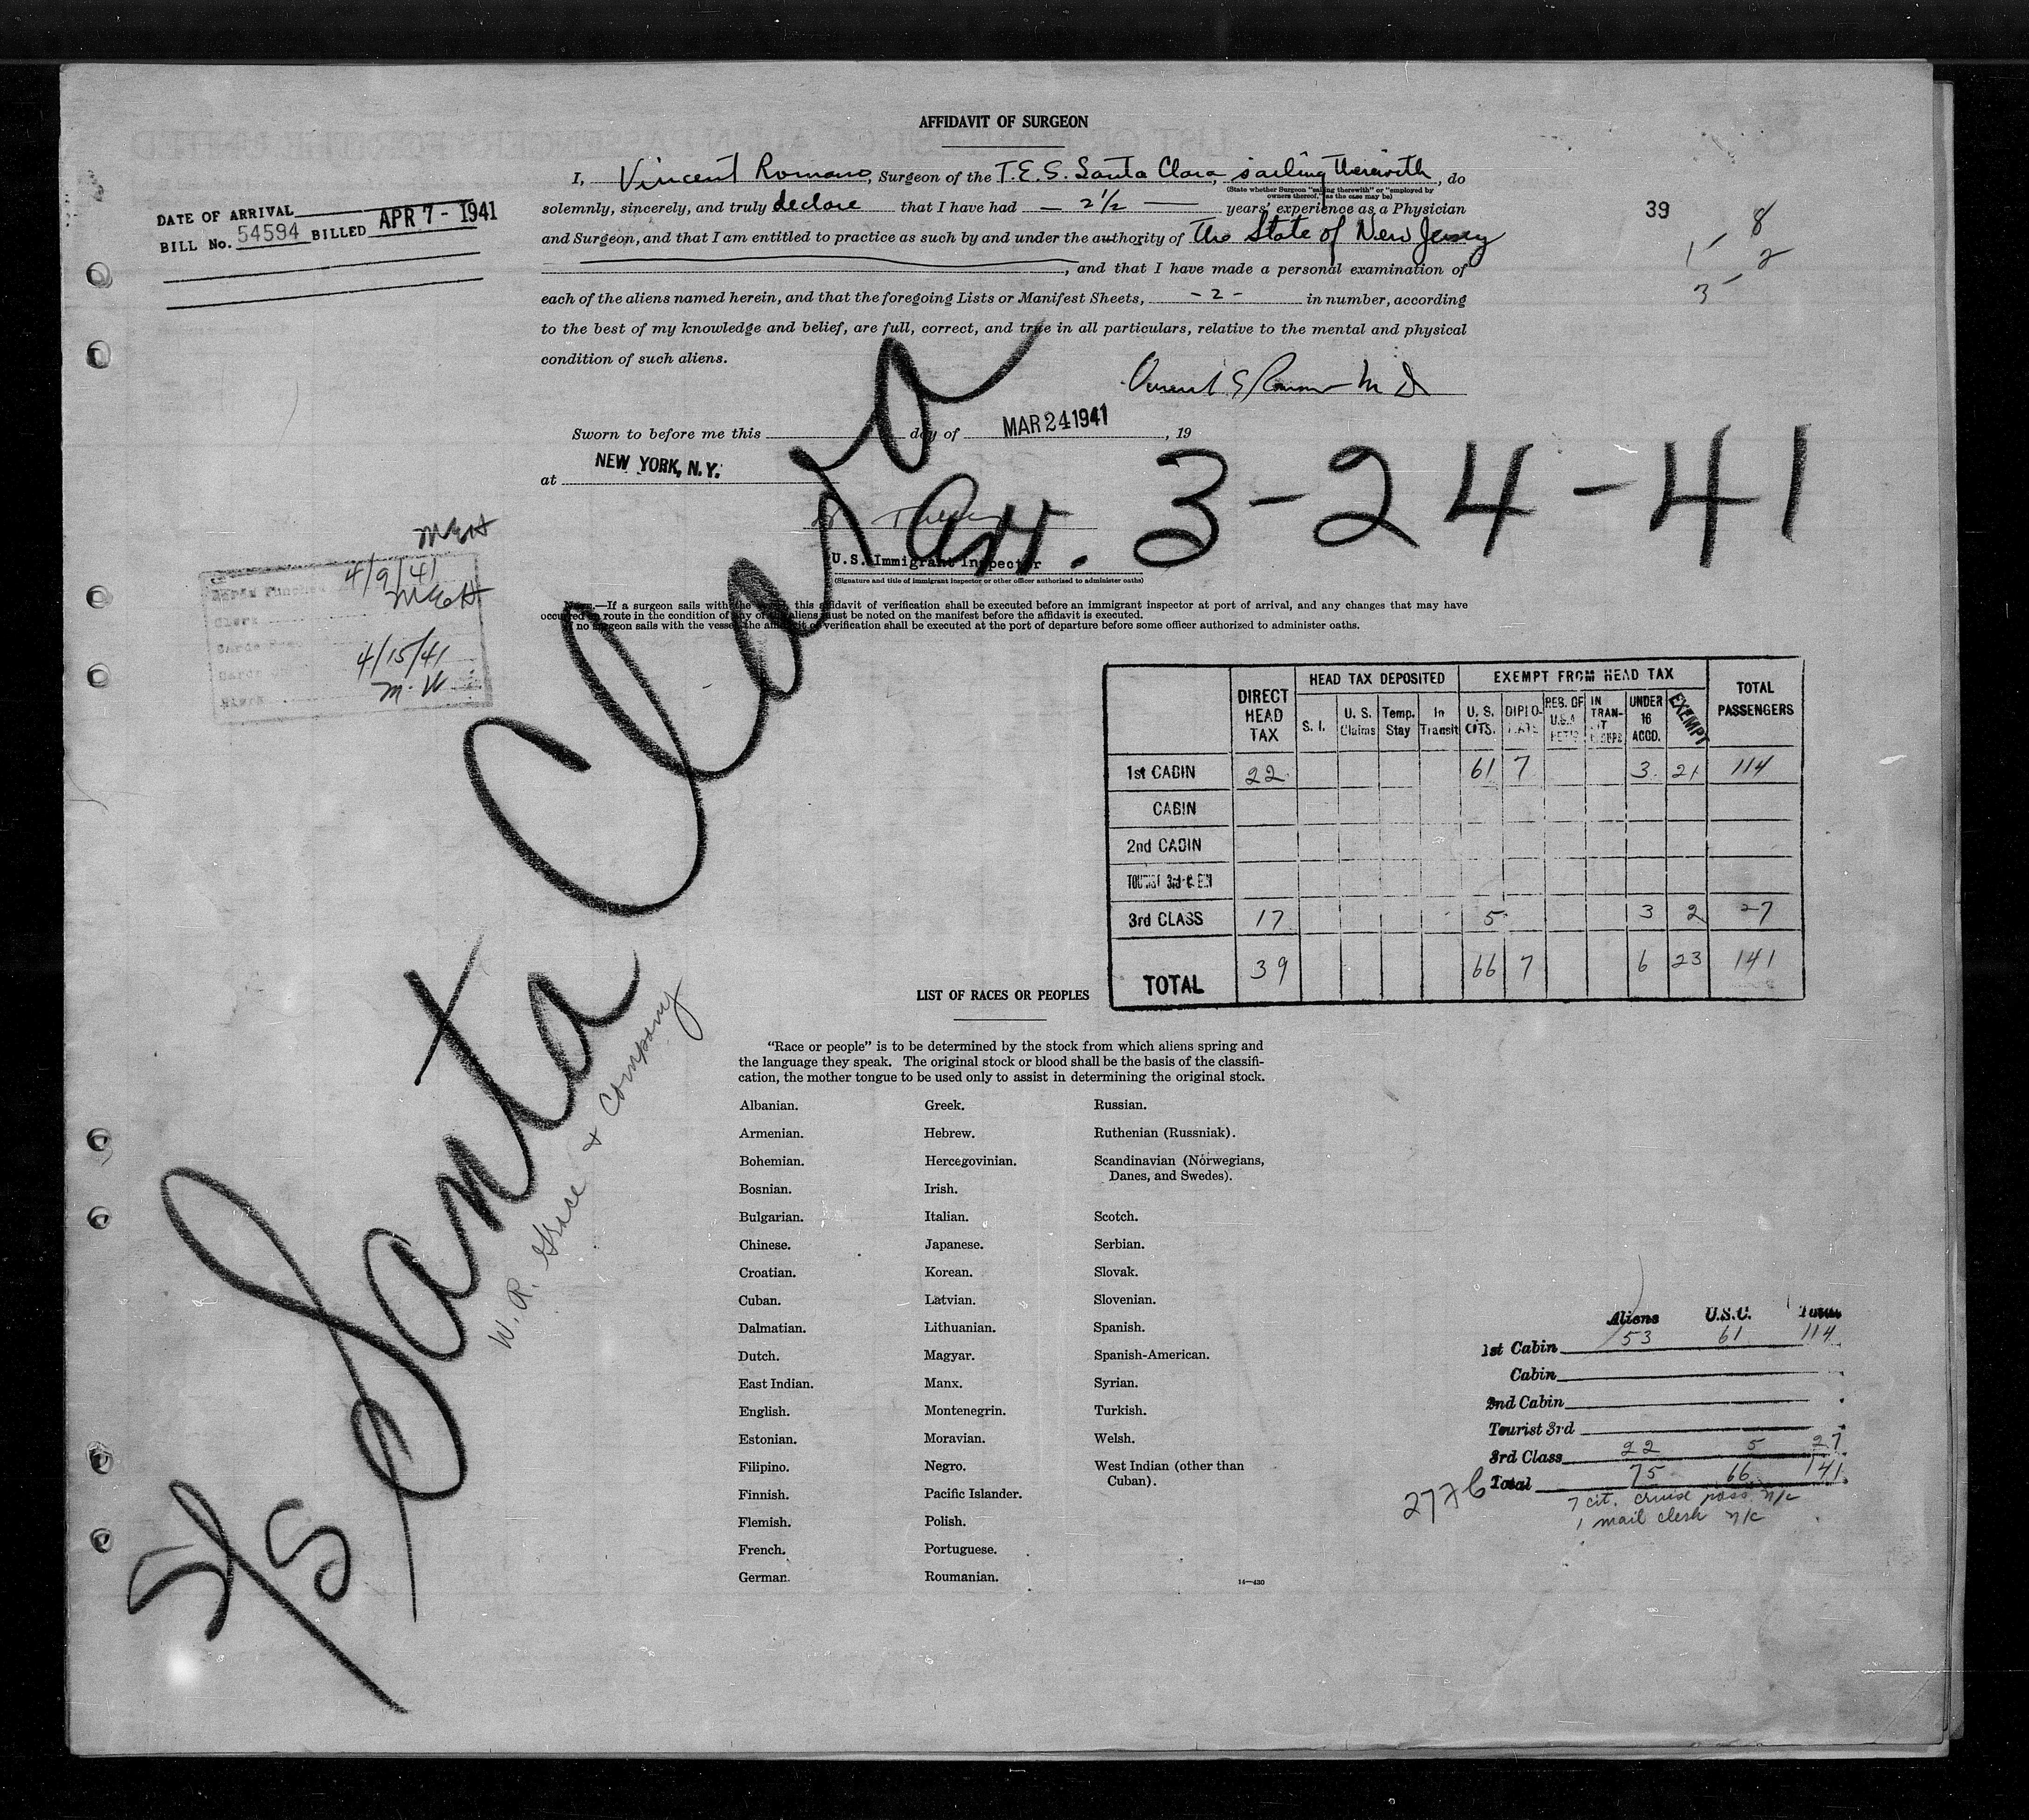 AFFIDAVIT OF SURGEON
I, Vincent Romano, Surgeon of the T.E.S. Santa Clara, sailing therewith, do
(State whether Surgeon "sailing therewith" or "employed by
owners thereof," as the case may be)
solemnly, sincerely, and truly declare that I have had - 2½ - years' experience as a Physician
and Surgeon, and that I am entitled to practice as such by and under the authority of The State of New Jersey
, and that I have made a personal examination of
each of the aliens named herein, and that the foregoing Lists or Manifest Sheets, - 2 - in number, according
to the best of my knowledge and belief, are full, correct, and true in all particulars, relative to the mental and physical
condition of such aliens.
DATE OF ARRIVAL
BILL No. 54594 BILLED APR 7 - 1941
39
8
1 - 2
3 -
M D
Sworn to before me this day of MAR 24 1941, 19
at NEW YORK, N.Y.
Arr. 3-24-41
U.S. Immigrant Inspector
(Signature and title of immigrant inspector or other officer authorized to administer oaths)
NOTE.—If a surgeon sails with the vessel, this affidavit of verification shall be executed before an immigrant inspector at port of arrival, and any changes that may have
occurred en route in the condition of any of the aliens must be noted on the manifest before the affidavit is executed.
If no surgeon sails with the vessel, the affidavit of verification shall be executed at the port of departure before some officer authorized to administer oaths.
4/9/41
Clerk
4/15/41
Clerk
S/S Santa Clara
W. R. Grace & Company
DIRECT HEAD TAX
HEAD TAX DEPOSITED
EXEMPT FROM HEAD TAX
TOTAL PASSENGERS
S. I. U. S. Claims Temp. Stay In Transit U. S. CITS. DIPLOMATS RES. OF U.S.A. RET'G IN TRANSIT UNDER 16 ACCD. EXEMPT
1st CABIN 22 61 7 3 21 114
CABIN
2nd CABIN
TOURIST 3rd CABIN
3rd CLASS 17 5 3 2 27
TOTAL 39 66 7 6 23 141
LIST OF RACES OR PEOPLES
"Race or people" is to be determined by the stock from which aliens spring and
the language they speak. The original stock or blood shall be the basis of the classifi-
cation, the mother tongue to be used only to assist in determining the original stock.
Albanian. Greek. Russian.
Armenian. Hebrew. Ruthenian (Russniak).
Bohemian. Hercegovinian. Scandinavian (Norwegians,
Danes, and Swedes).
Bosnian. Irish.
Bulgarian. Italian. Scotch.
Chinese. Japanese. Serbian.
Croatian. Korean. Slovak.
Cuban. Latvian. Slovenian.
Dalmatian. Lithuanian. Spanish.
Dutch. Magyar. Spanish-American.
East Indian. Manx. Syrian.
English. Montenegrin. Turkish.
Estonian. Moravian. Welsh.
Filipino. Negro. West Indian (other than
Cuban).
Finnish. Pacific Islander.
Flemish. Polish.
French. Portuguese.
German. Roumanian.
14—430
Aliens U.S.C. Total
1st Cabin 53 61 114
Cabin
2nd Cabin
Tourist 3rd
3rd Class 22 5 27
Total 75 66 141
7 cit. cruise pass. n/c
1 mail clerk n/c